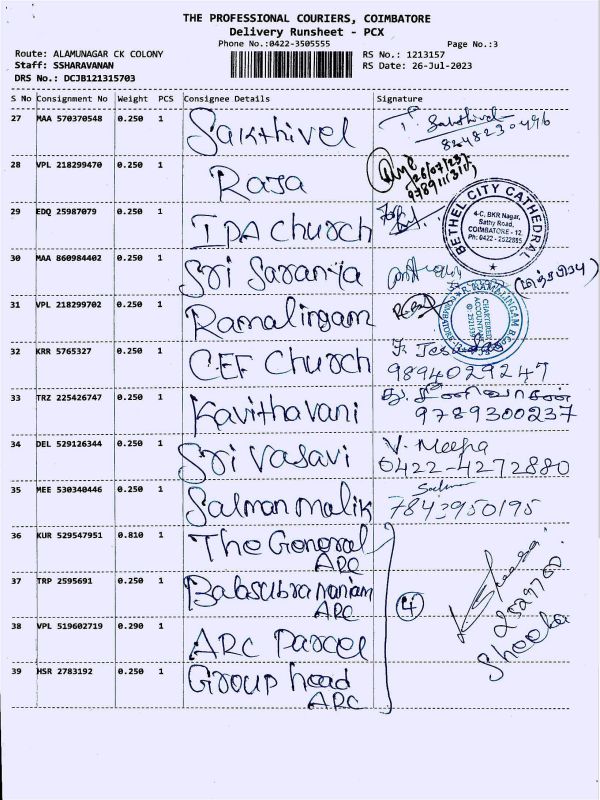 THE PROFESSIONAL COURIERS, COIMBATORE
Delivery Runsheet - PCX
Phone No.:0422-3505555 Page No.:3
Route: ALAMUNAGAR CK COLONY RS No.: 1213157
Staff: SSHARAVANAN RS Date: 26-Jul-2023
DRS No.: DCJB121315703
S No Consignment No Weight PCS Consignee Details Signature
27 MAA 570370548 0.250 1 Sakthivel T. Sakthivel
8248230496
28 VPL 218299470 0.250 1 Raja 26/07/23
29 EDQ 25987079 0.250 1 IPA Church
BETHEL CITY CATHEDRAL
4-C, BKR Nagar,
Sathy Road,
COIMBATORE - 12.
Ph: 0422 - 2522885
30 MAA 860984402 0.250 1 Sri Saranya
31 VPL 218299702 0.250 1 Ramalingam
CHARTERED
ACCOUNTANT
32 KRR 5765327 0.250 1 CEF Church
9894029247
33 TRZ 225426747 0.250 1 Kavithavani
9789300237
34 DEL 529126344 0.250 1 Sri Vasavi V. Meena
0422-4272880
35 MEE 530340446 0.250 1 Salman malik
7843950195
36 KUR 529547951 0.810 1 The General
ARC
37 TRP 2595691 0.250 1 Balasubramaniam
ARC
4
38 VPL 519602719 0.290 1 ARC Parcel
Sheela
39 HSR 2783192 0.250 1 Group head
ARC